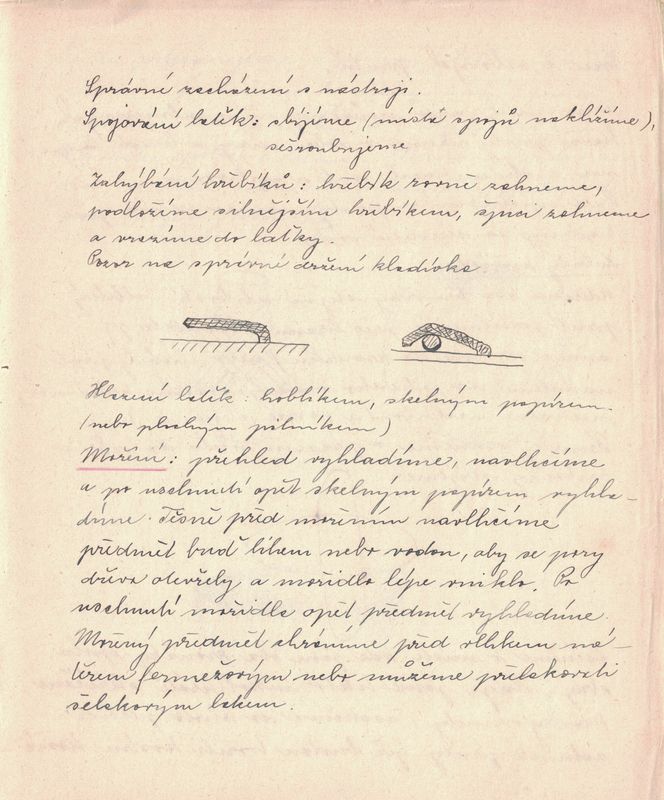 Správné zacházení s nástroji.
Spojování latěk: sbijíme (místa spojů naklížíme),
sešroubujeme
Zahýbání hřebíků: hřebík rovně zahneme,
podložíme silnějším hřebíkem, špici zahneme
a vrazíme do laťky.
Pozor na správné držení kladívka
Hlazení latěk: hoblíkem, skelným papírem.
(nebo plochým pilníkem)
Moření: přehled vyhladíme, navlhčíme
a po uschnutí opět skelným papírem vyhla-
díme. Těsně před mořením navlhčíme
předmět buď lihem nebo vodou, aby se pory
dřeva otevřely a mořidlo lépe vniklo. Po
uschnutí mořidla opět předmět vyhladíme.
Mořený předmět chráníme před vlhkem ná-
těrem fermežovým nebo můžeme přelakovati
šelakovým lakem.